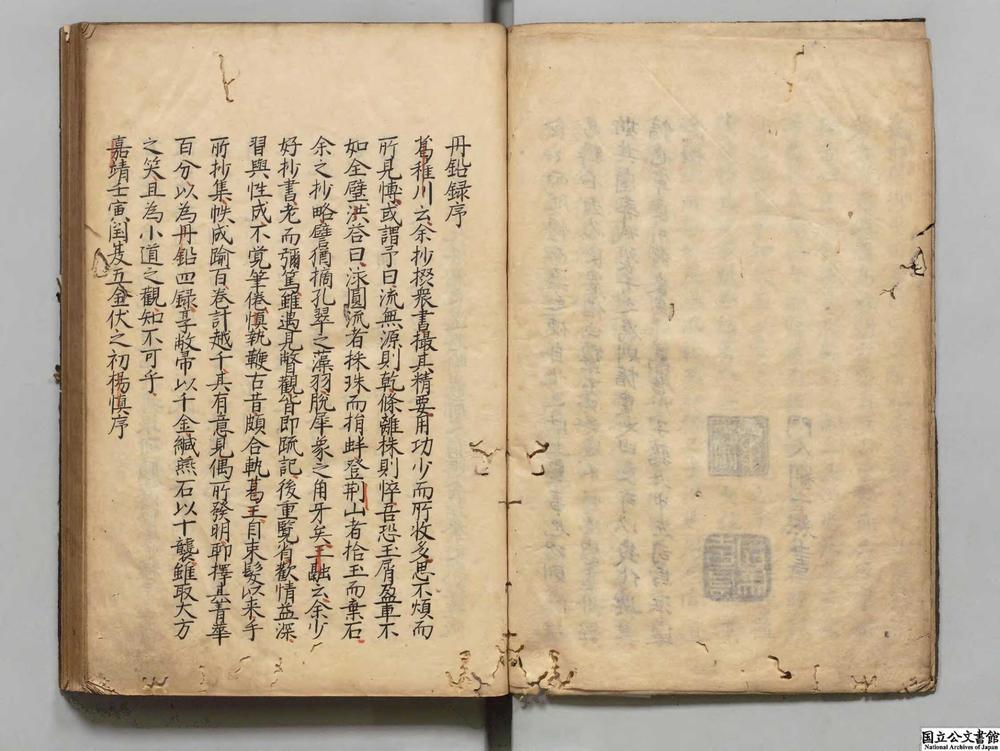 丹鉛録序
葛稚川云余抄掇衆書撮其精要用功少而所收多思不煩而
所見博或謂予曰流無源則乾條離株則悴吾恐玉屑盈車不
如全璧洪荅曰泳圓流者採珠而捐蚌登荆山者拾玉而棄石
余之抄略譬猶摘孔翠之藻羽脱犀象之角牙矣王融云余少
好抄書老而彌篤雖遇見瞥觀皆即疏記後重覧省歡情益深
習與性成不覚筆倦慎執鞭古昔頗合軌葛王自束髮以来手
所抄集帙成踰百卷計越千其有意見偶所發明聊擇其菁華
百分以為丹鉛四録享敝帚以千金緘燕石以十襲雖取大方
之笑且為小道之觀知不可乎
嘉靖壬寅閏五金伏之初楊慎序
国立公文書館
National Archives of Japan